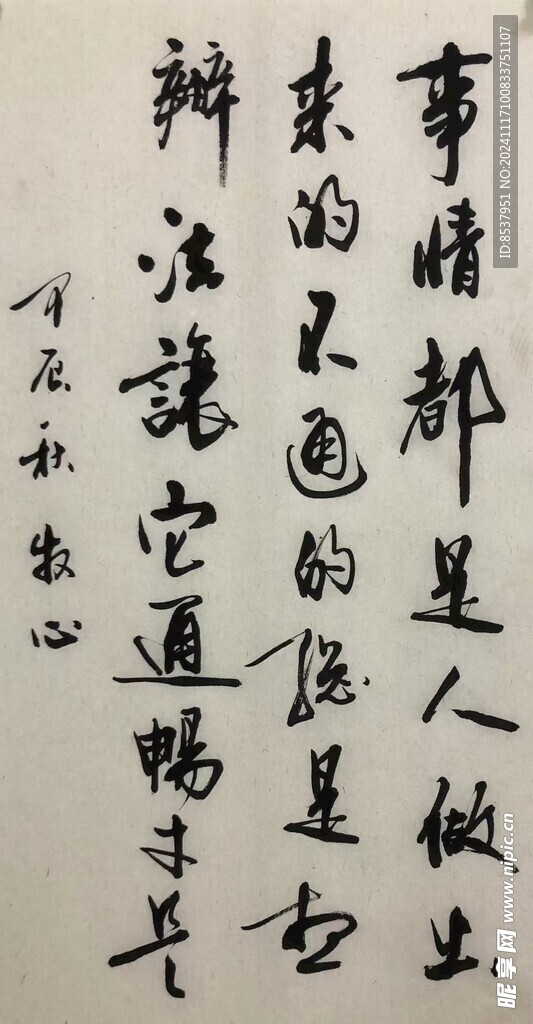 事情都是人做出
来的不通的總是想
辦法讓它通暢才是
甲辰秋牧心
ID:8537951 NO:20241117100833751107
昵享网 www.nipic.cn